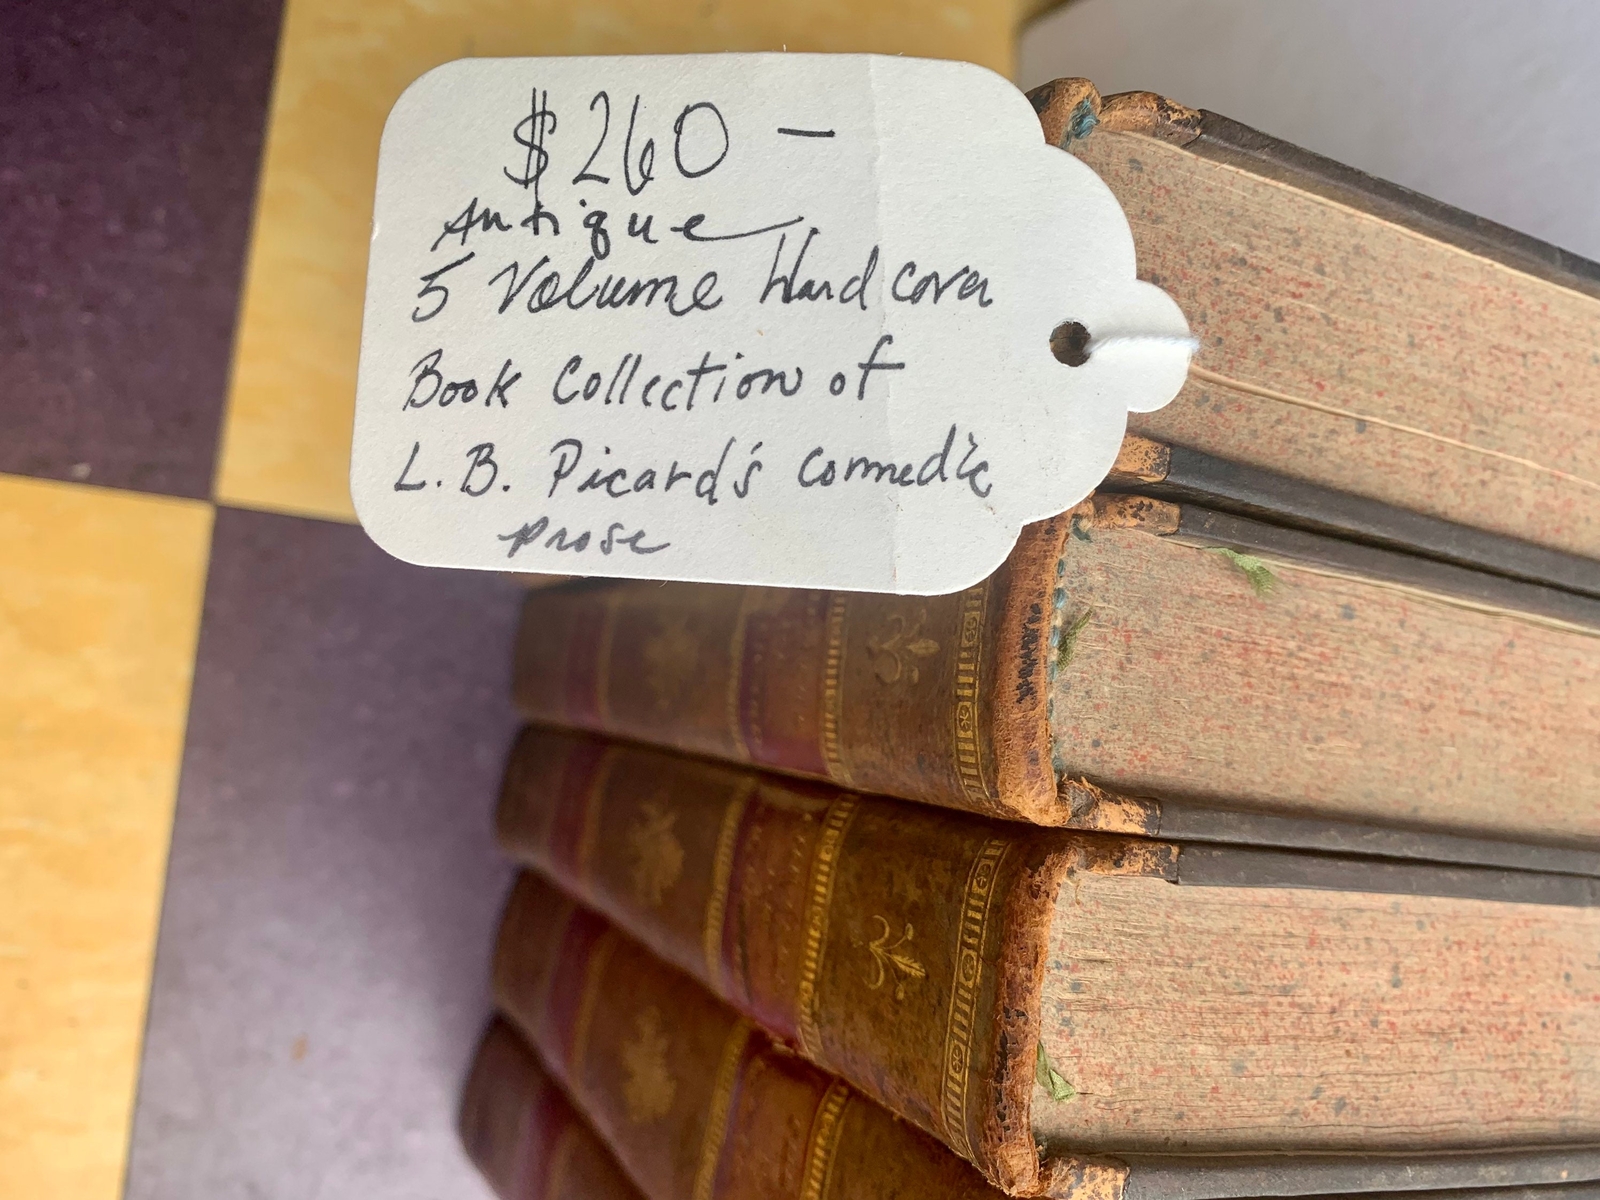 $260 —
Antique
5 Volume Hardcover
Book Collection of
L.B. Picard's comedic
prose